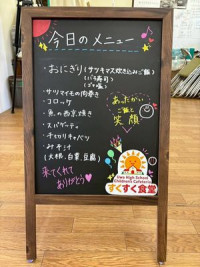 今日のメニュー
・おにぎり(サツキマス炊き込みご飯)
(バラ寿司)
・サツマイモの肉巻き
・コロッケ
・魚の西京焼き
・スパゲティ
・千切りキャベツ
・みそ汁
(大根、白菜、豆腐)
あったかい
ご飯と
笑顔
来てくれて
ありがとう
Uwa High School
Children's Cafeteria
すくすく食堂